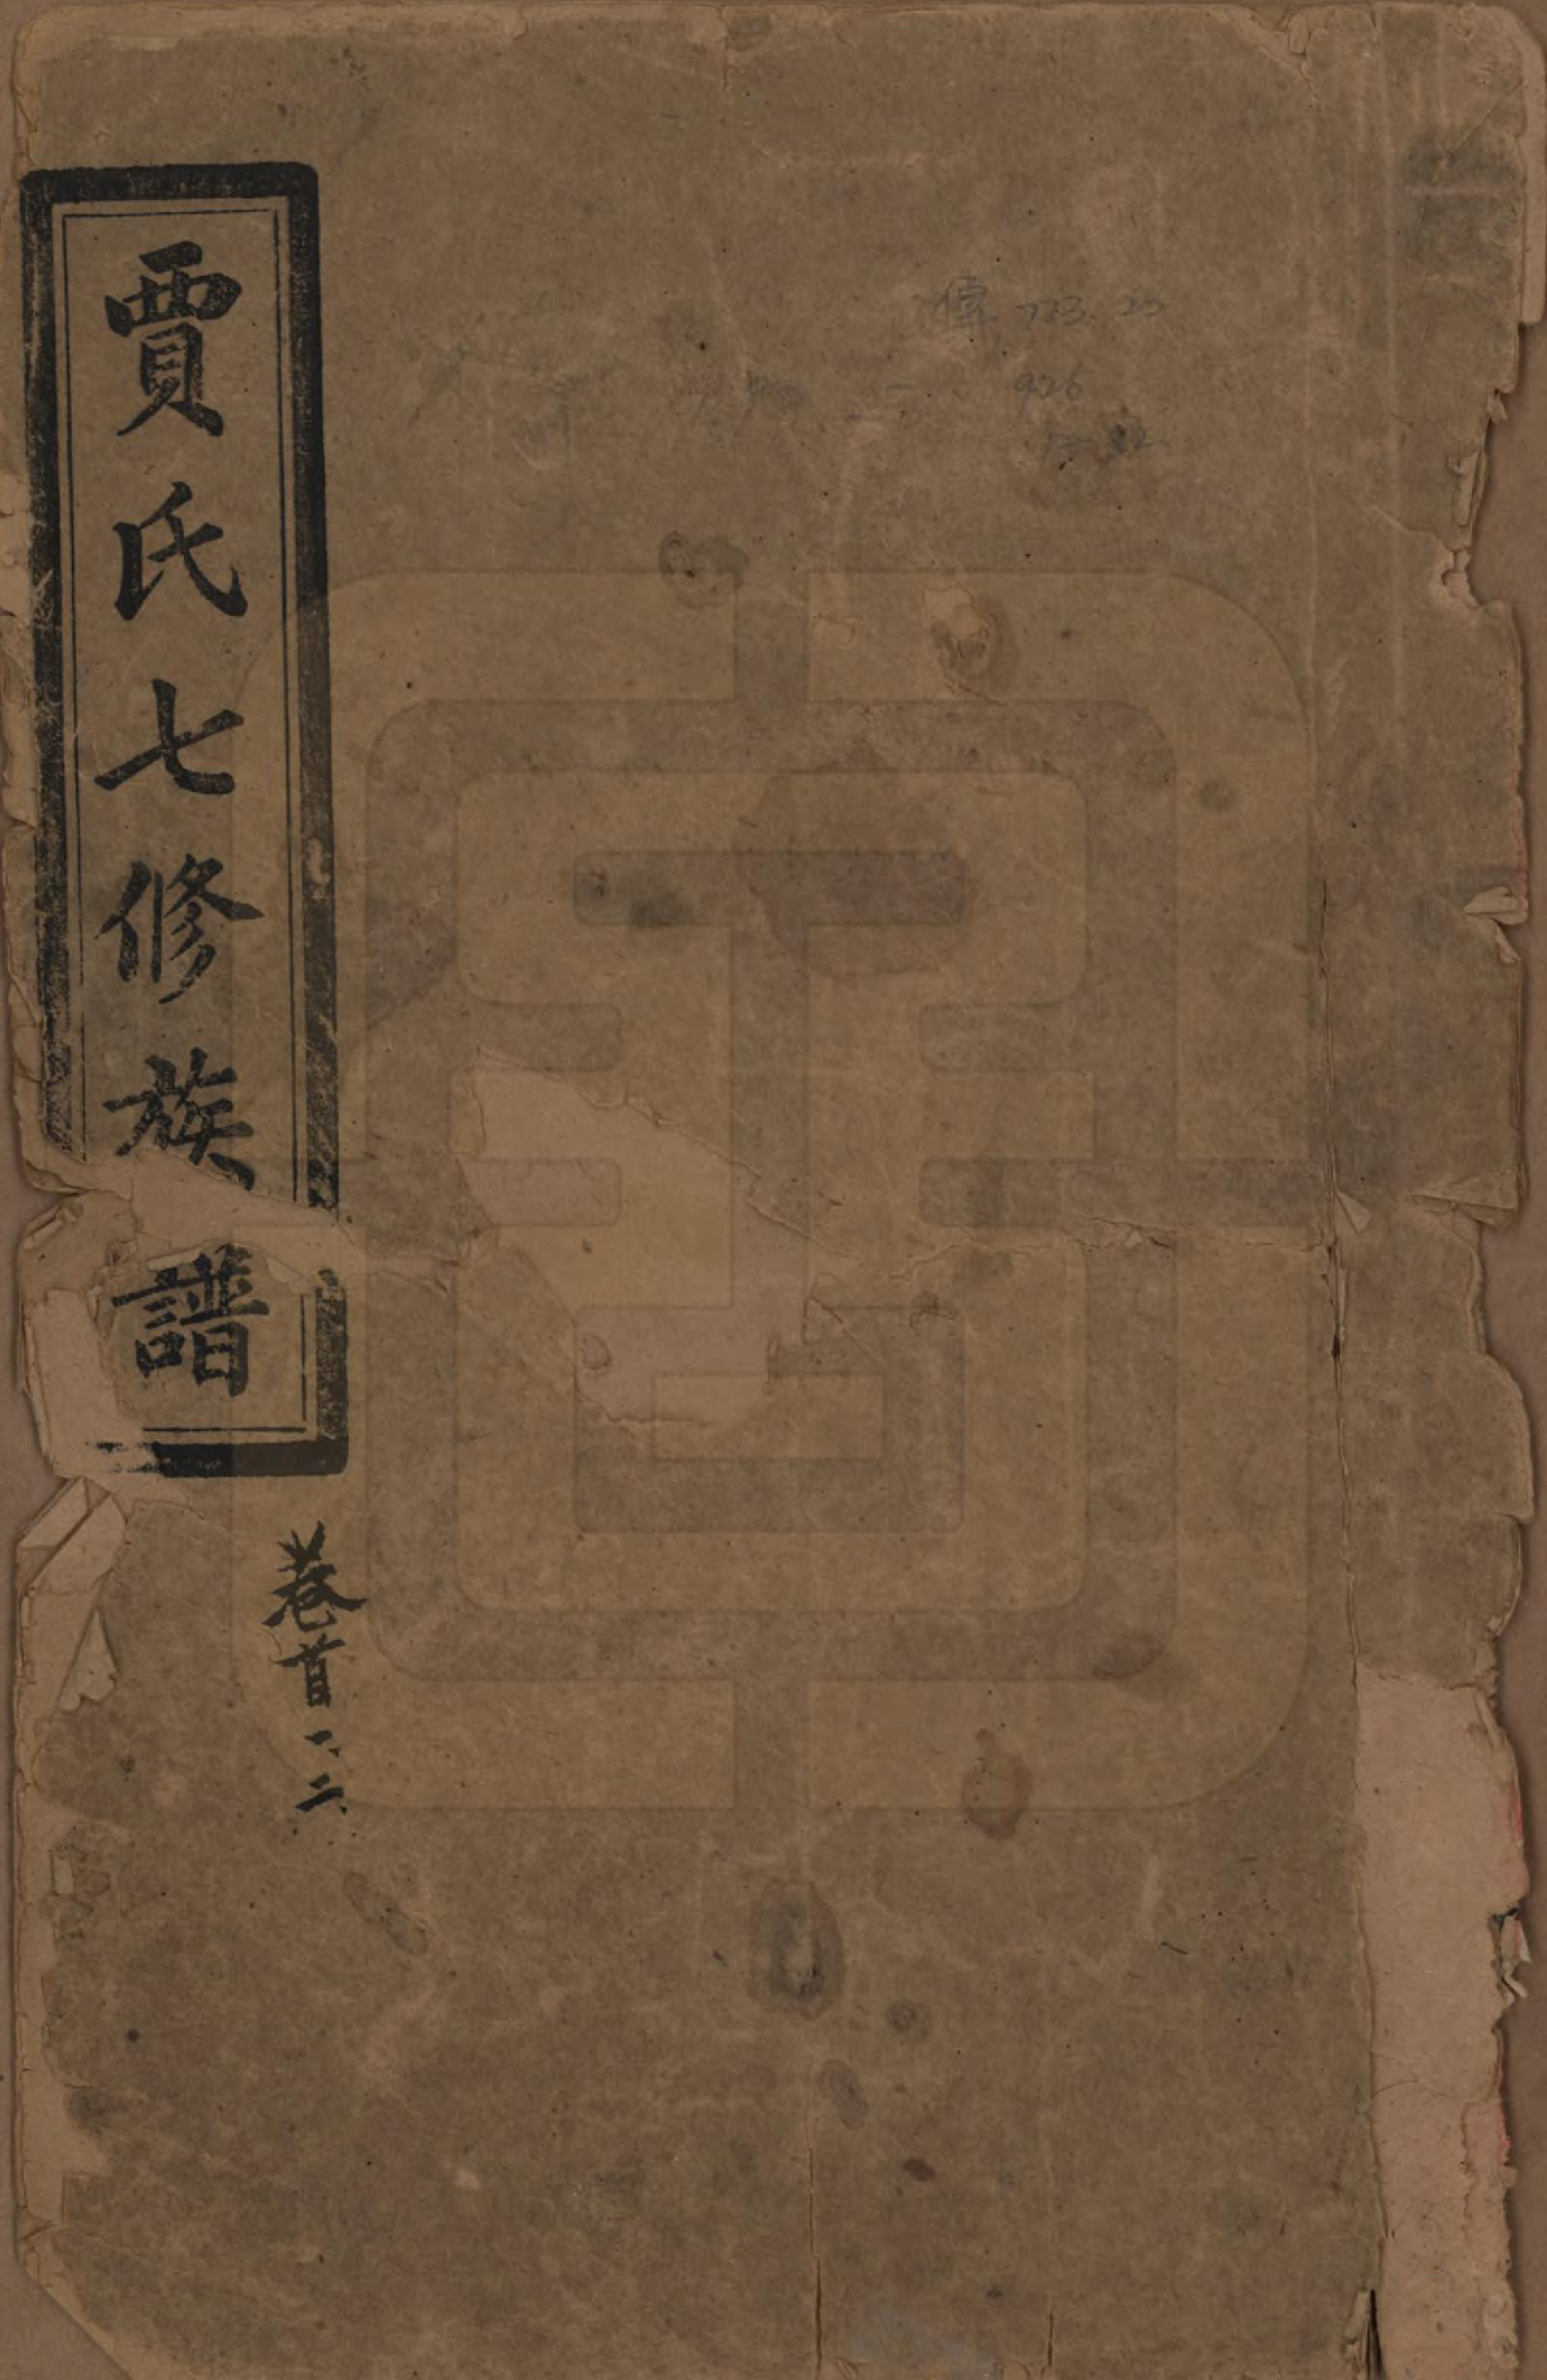 賈氏七修族譜
卷首一、二、
傳 773.25
926